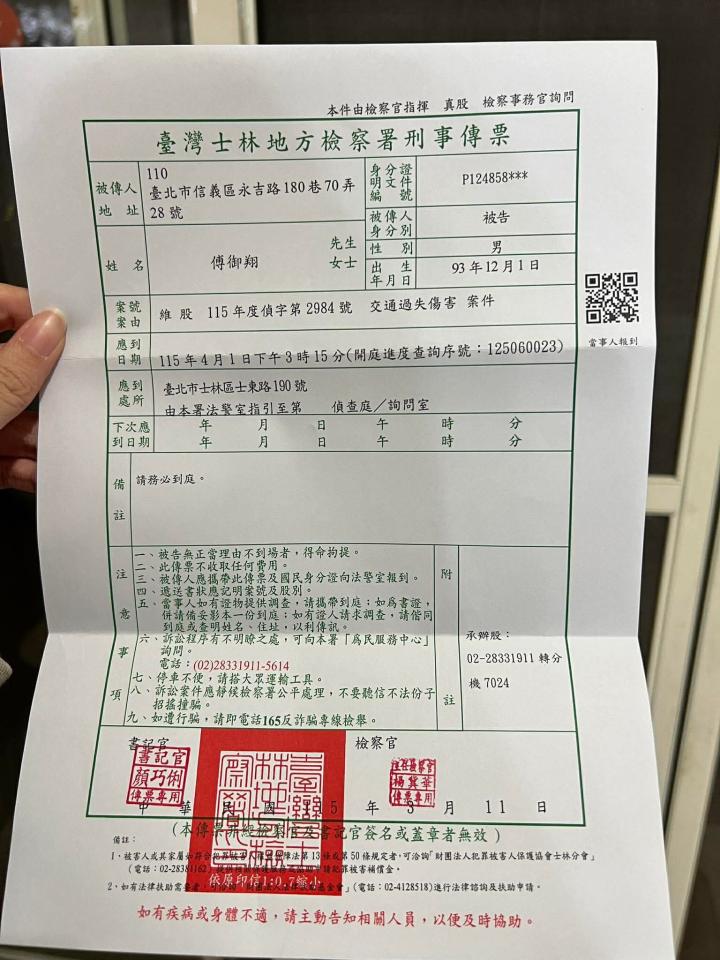 本件由檢察官指揮 真股 檢察事務官詢問
臺灣士林地方檢察署刑事傳票
被傳人
地址
110
臺北市信義區永吉路180巷70弄
28號
身分證
明文件
編號
P124858***
被傳人
身分別
被告
姓名
傅御翔
先生
女士
性別
男
出生
年月日
93年12月1日
案號
案由
維股 115年度偵字第2984號 交通過失傷害 案件
應到
日期
115年4月1日下午3時15分(開庭進度查詢序號:125060023)
當事人報到
應到
處所
臺北市士林區士東路190號
由本署法警室指引至第 偵查庭/詢問室
下次應
到日期
年 月 日 午 時 分
年 月 日 午 時 分
備註
請務必到庭。
注意事項
一、被告無正當理由不到場者,得命拘提。
二、此傳票不收取任何費用。
三、被傳人應攜帶此傳票及國民身分證向法警室報到。
四、遞送書狀應記明案號及股別。
五、當事人如有證物提供調查,請攜帶到庭;如為書證,
併請備妥影本一份到庭;如有證人請求調查,請偕同
到庭或查明姓名、住址,以利傳訊。
六、訴訟程序有不明瞭之處,可向本署「為民服務中心」
詢問。
電話:(02)28331911-5614
七、停車不便,請搭大眾運輸工具。
八、訴訟案件應靜候檢察署公平處理,不要聽信不法份子
招搖撞騙。
九、如遭行騙,請即電話165反詐騙專線檢舉。
附註
承辦股:
02-28331911 轉分
機 7024
書記官
書記官
顏巧俐
傳票專用
檢察官
主任檢察官
楊冀華
傳票專用
臺灣士林地檢察署印
依原印信1:0.7縮小
中華民國 5年3月11日
(本傳票非經檢察官及書記官簽名或蓋章者無效)
備註:
1、被害人或其家屬如符合犯罪被害人權益保障法第13條或第50條規定者,可洽詢「財團法人犯罪被害人保護協會士林分會」
(電話:02-28381162)提供相關保護服務或協助申請犯罪被害補償金。
2、如有法律扶助需要者,可洽詢「財團法人法律扶助基金會」(電話:02-4128518)進行法律諮詢及扶助申請。
如有疾病或身體不適,請主動告知相關人員,以便及時協助。